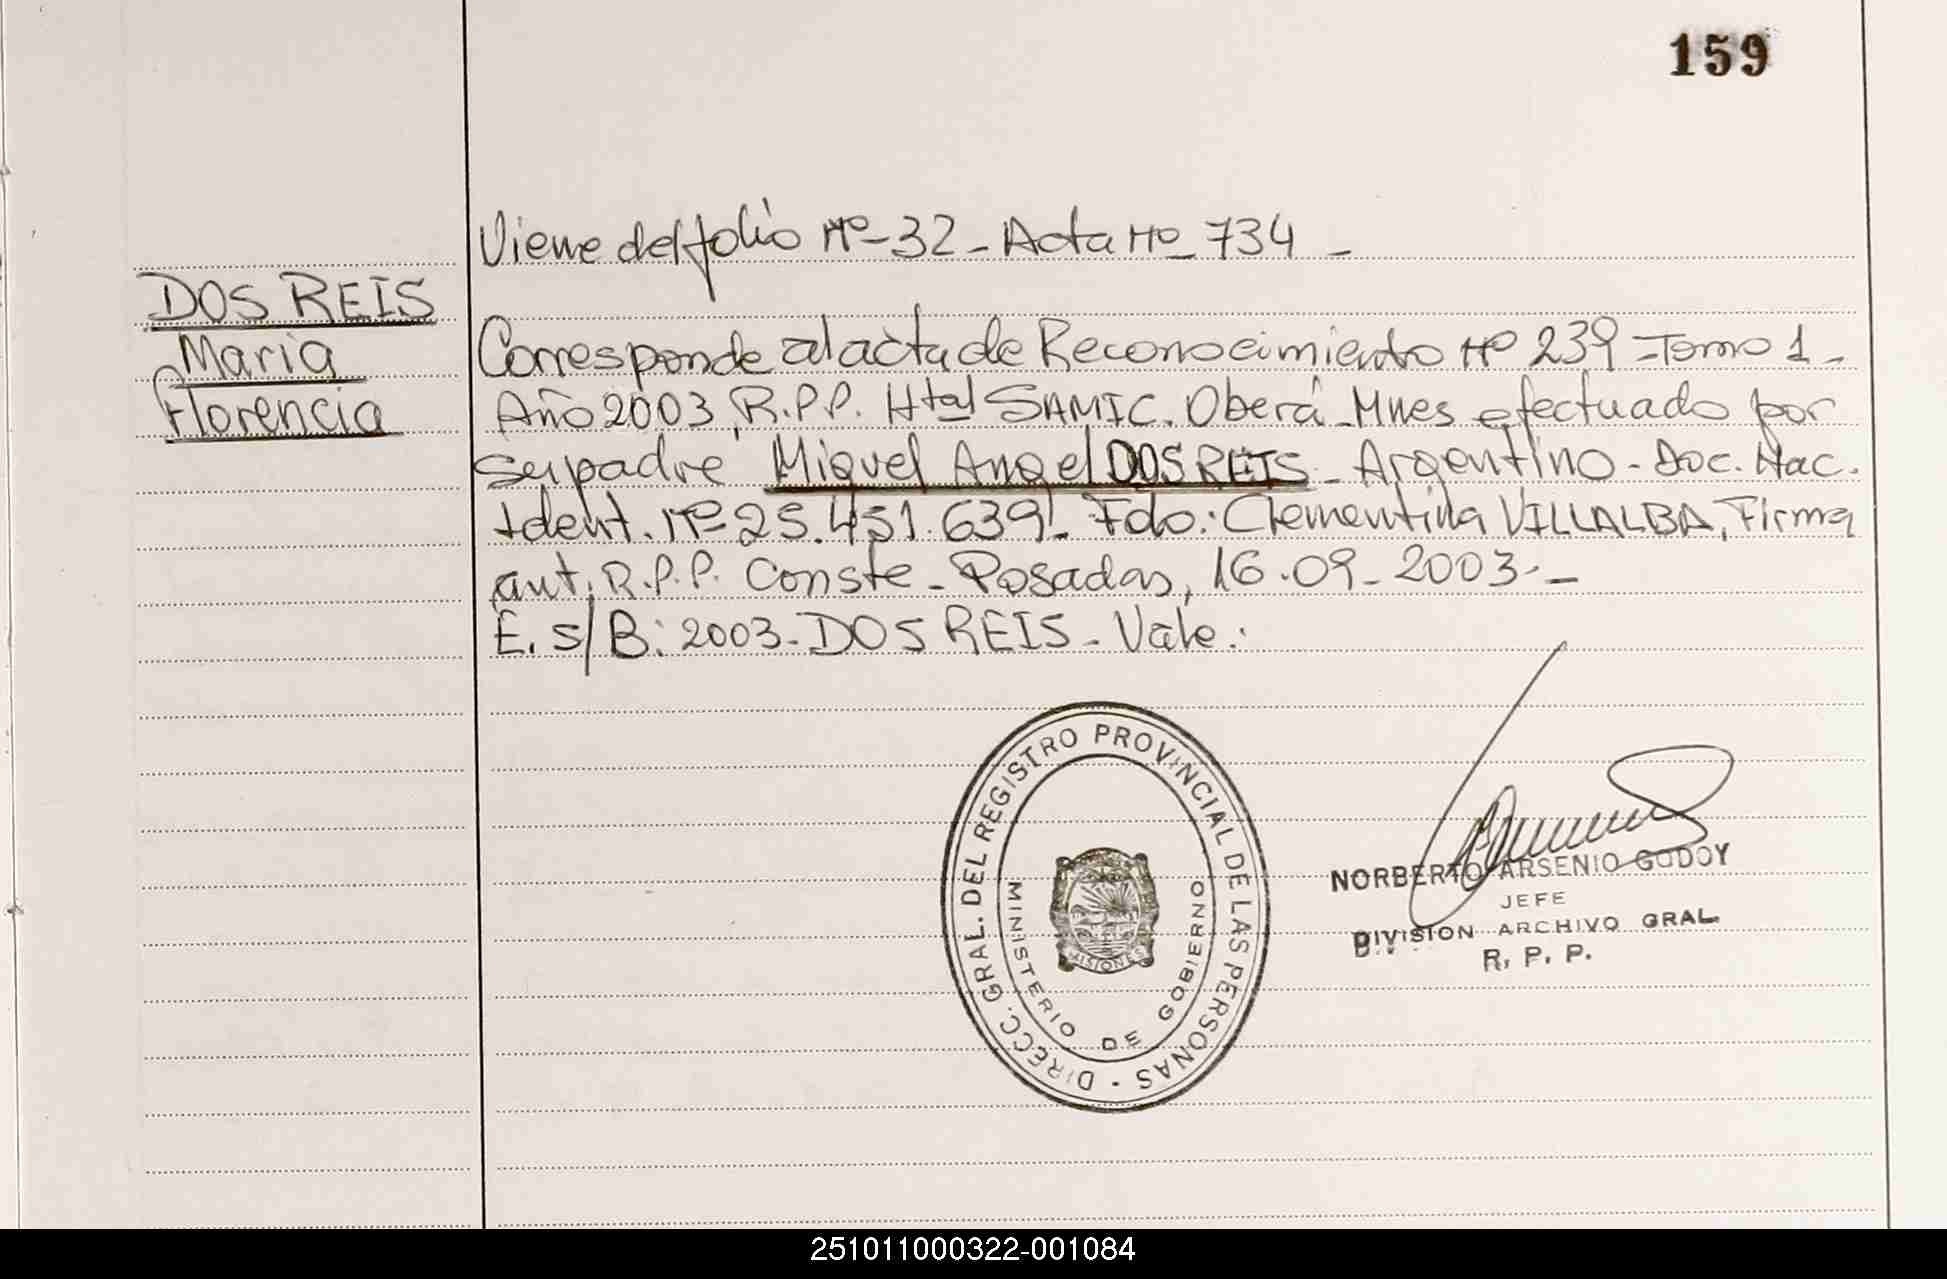 159
Viene del folio Nº-32- Acta Nº 734 -
DOS REIS
Maria
Florencia
Corresponde al acta de Reconocimiento Nº 239 - Tomo 1 -
Año 2003, R.P.P. Htal SAMIC. Oberá - Mnes efectuado por
su padre Miguel Angel DOS REIS - Argentino - Doc. Nac.
Ident. Nº 25.451.639!- Fdo: Clementina VILLALBA, Firma
aut. R.P.P. Conste - Posadas, 16.09-2003.-
E. s/ B: 2003-DOS REIS - Vale:
DIRECC. GRAL. DEL REGISTRO PROVINCIAL DE LAS PERSONAS -
MINISTERIO DE GOBIERNO
MISIONES
NORBERTO ARSENIO GODOY
JEFE
DIVISION ARCHIVO GRAL.
R. P. P.
251011000322-001084